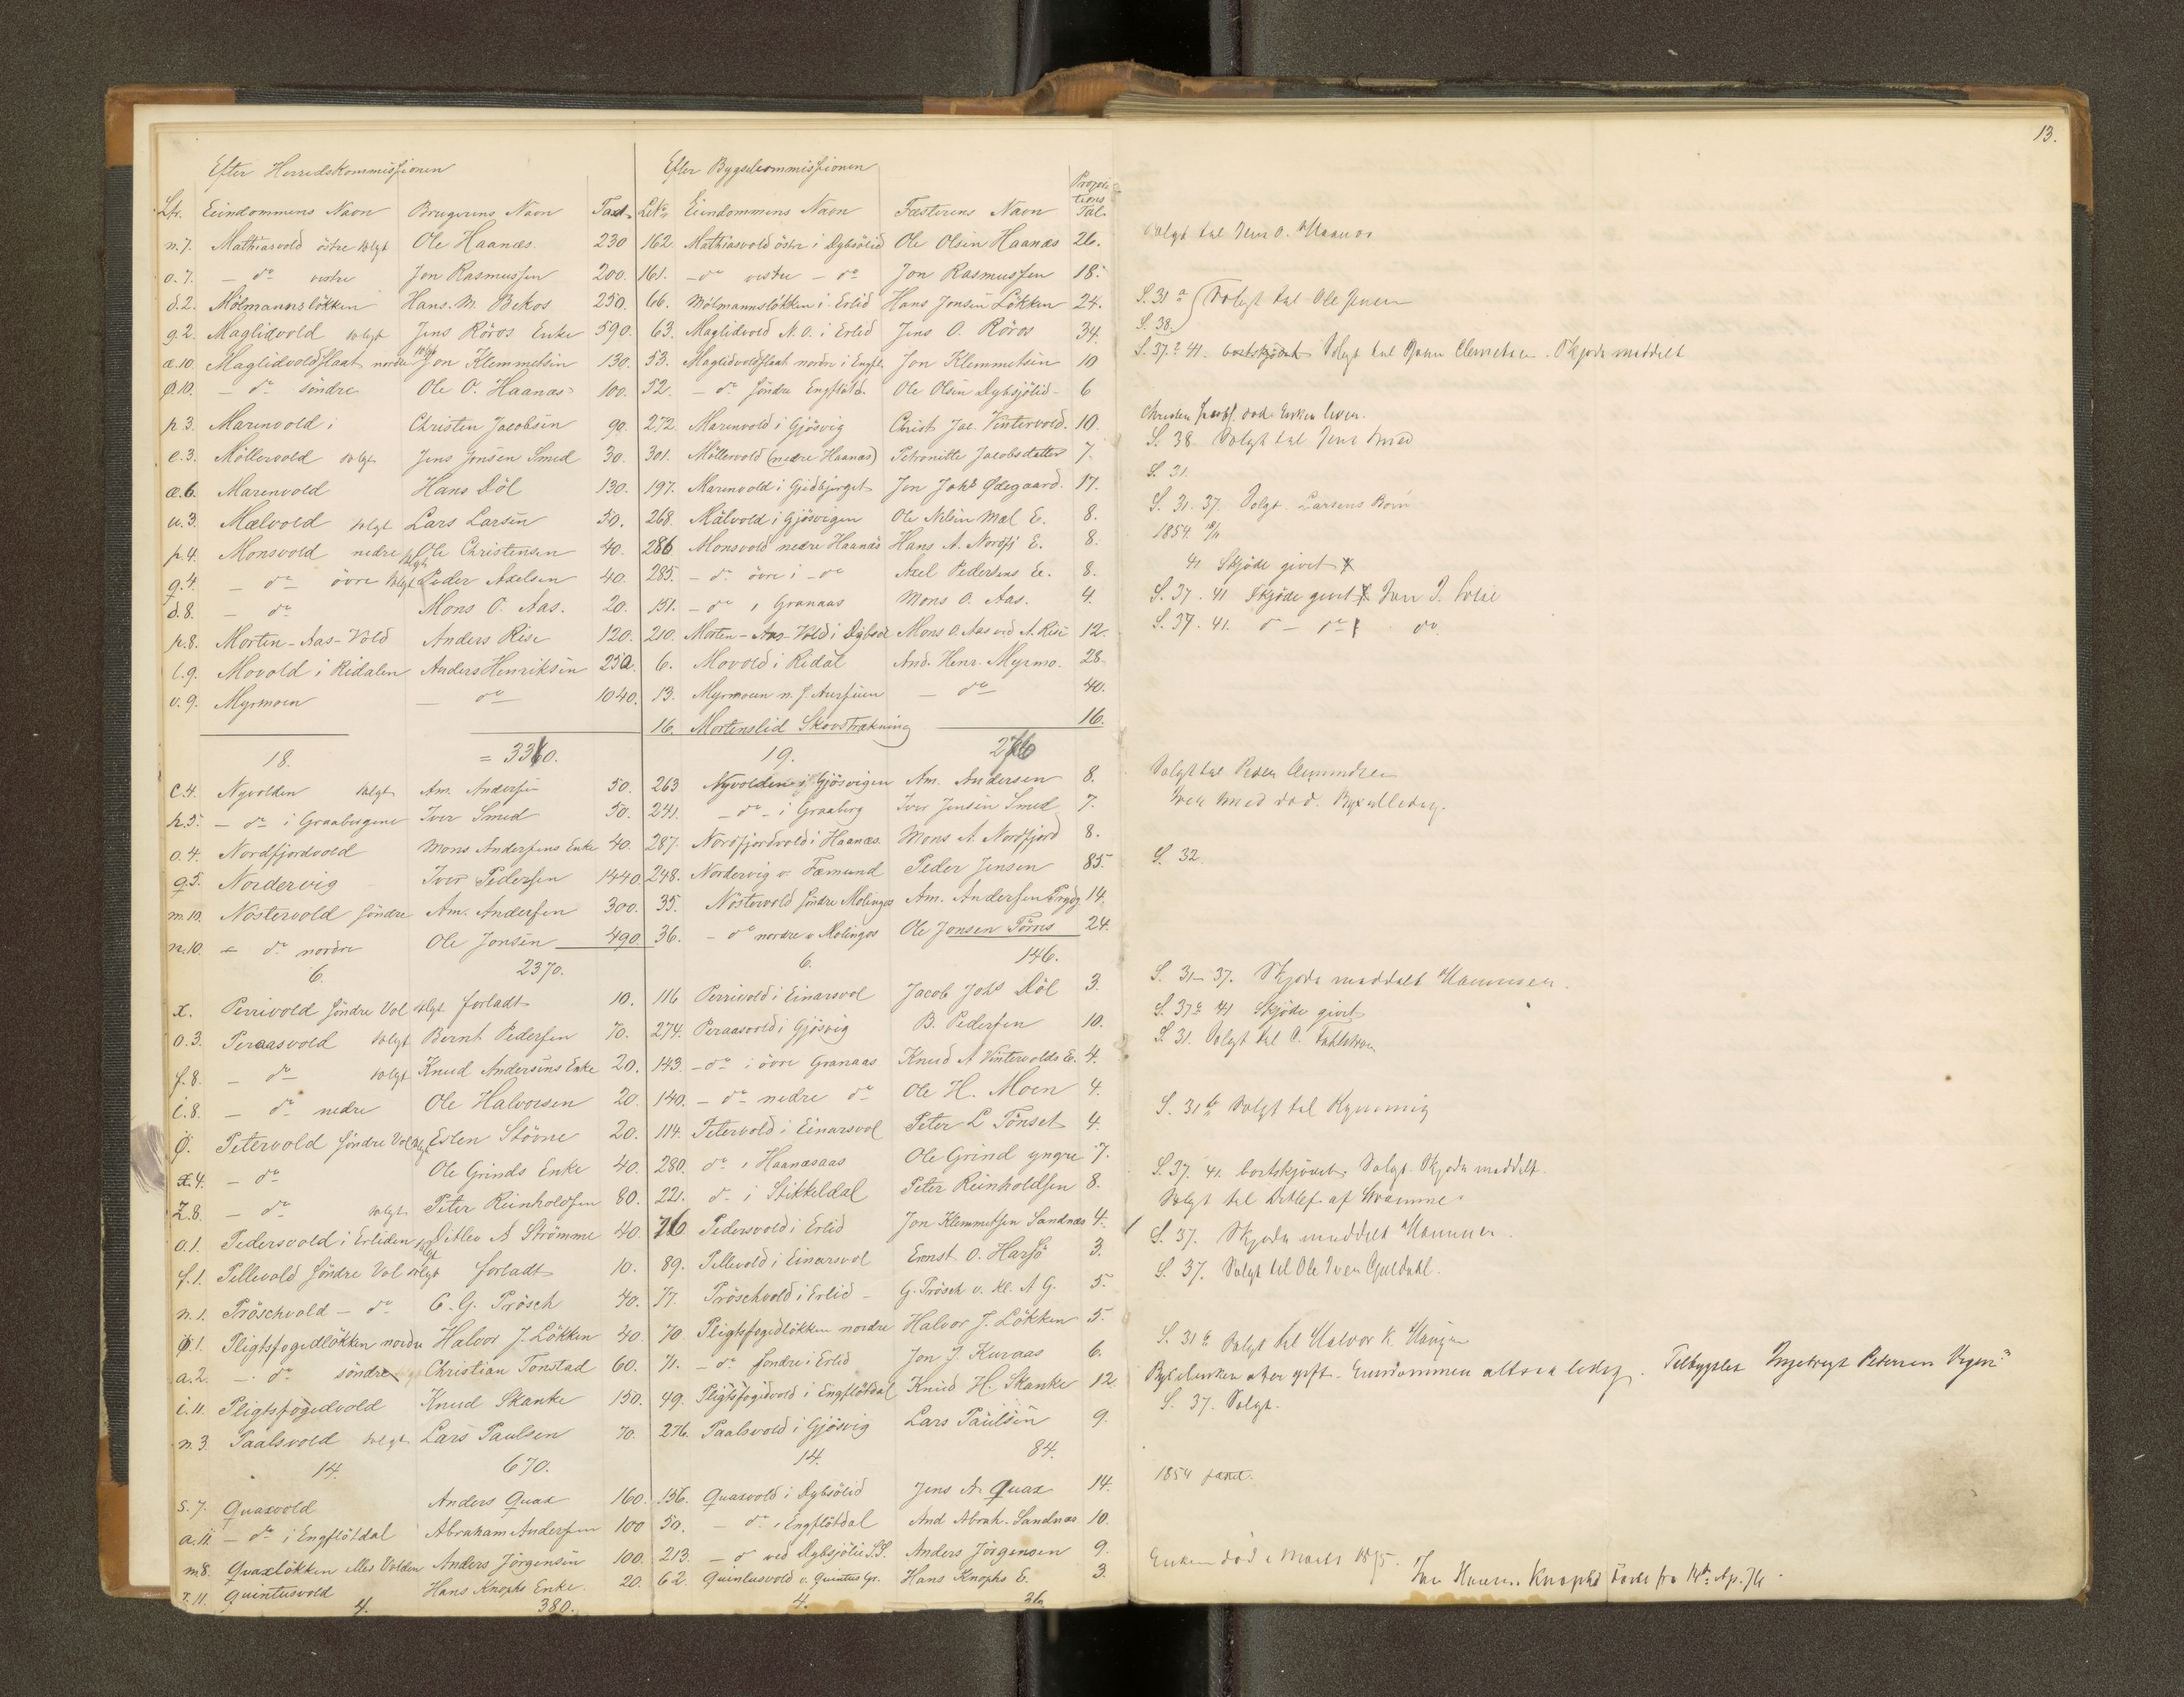 13.
Efter Herredskommissionen Efter Bygselcommissionen
Ltr. Eiendommens Navn Brugerens Navn Taxt. Litr. Eiendommens Navn Fæsterens Navn Proportions Tal.
n.7. Mathiasvold östre solgt Ole Haanæs. 230 162. Mathiasvold östre i Dybsölid Ole Olsen Haanæs 26. Solgt til
o.7. - do vestre Jon Rasmussen 200. 161. - do vestre - do Jon Rasmussen 18.
d.2. Mölmannslökken Hans. M. Bekos 250. 66. Mölmannslökken i Erlid Hans Jonsen Lökken 24. S. 31 a Solgt til Ole
g.2. Maglidvold solgt Jens Röros Enke 590. 63. Maglidvold N.O. i Erlid Jens O. Röros 34. S. 38.
æ.10. Maglidvoldflaat nordre solgt Jon Klemmetsen 130. 53. Maglidvoldflaat nordre i Engfl. Jon Klemmetsen 10 S. 37. a 41. bortskjödet Solgt til John Clemetsen. Skjøde meddelt
ø.10. - do söndre Ole O. Haanæs 100. 52. - do söndre Engflötd. Ole Olsen Dybsjölid - 6
p.3. Marenvold i Christen Jacobsen 90. 272. Marenvold i Gjösvig Christ Jac. Vintervold. 10. Christen Jacobs. död Enken lever.
e.3. Möllervold solgt Jens Jonsen Smed 30. 301. Möllervold (nedre Haanæs) Petronille Jacobsdatter 7. S. 38 Solgt til Jens Smed
æ.6. Marenvold Hans Döl 130. 197. Marenvold i Gjetbjerget Jon Johs Ødegaard. 17. S. 31.
u.3. Mælvold solgt Lars Larsen 50. 268. Mälvold i Gjösvigen Ole Nilsen Mæl E. 8. S. 31. 37. Solgt. Larsens Börn
p.4. Monsvold nedre solgt Ole Christensen 40. 286 Monsvold nedre Haanäs Hans A. Nordfj E. 8. 1854
q.4. - do - övre solgt Peder Axelsen 40. 285. - do övre i - do Axel Pedersens E. 8. 41 Skjöde givet
d.8. - do Mons O. Aas. 20. 151. - do i Granaas Mons O. Aas. 4. S. 37. 41 Skjöde givet
p.8. Morten-Aas-Vold Anders Rise 120. 210. Morten-Aas-Vold i Dybsöl Mons O. Aas ved A. Rise 12. S. 37. 41. do - do do
l.9. Movold i Ridalen Anders Henriksen 250. 6. Movold i Ridal And. Henr. Myrmo. 28.
v.9. Myrmoen - do - 1040. 13. Myrmoen n. f. Aursuen - do - 40.
16. Mortenslid Skovstrækning 16.
18. = 3360. 19. 276
c.4. Nyvolden solgt Am. Andersen 50. 263 Nyvolden i Gjösvigen Am. Andersen 8. Solgt til Peder Amundsen
p.5. - do i Graabergene Iver Smed 50. 241. - do - i Graaberg Iver Jensen Smed 7. Iver Smed död. Bygselledig.
o.4. Nordfjordvold Mons Andersens Enke 40. 287. Nordfjordvold i Haanæs. Mons A. Nordfjord 8.
q.5. Nordervig Iver Pedersen 1440. 248. Nordervig v. Fæmund Peder Jensen 85. S. 32.
m.10. Nöstervold söndre Am. Andersen 300. 35. Nöstervold söndre Molinger Am. Andersen Prydz 14.
n.10. - do nordre Ole Jonsen 490. 36. - do nordre v Molinger Ole Jonsen Törres 24.
6. 2370. 6. 146.
x. Perrivold söndre Vol solgt forladt 10. 116 Perrivold i Einarsvol Jacob Johs Döl 3. S. 31-37. Skjøde meddelt
o.3. Peraasvold solgt Bernt Pedersen 70. 274. Peraasvold i Gjösvig B. Pedersen 10. S. 37 a 41 Skjöde givet
f.8. - do - solgt Knud Andersens Enke 20. 143. - do i övre Granaas Knud A Vintervolds E. 4. S. 31. Solgt til
i.8. - do nedre Ole Halvorsen 20. 140. - do nedre do Ole H. Moen 4.
ø. Petervold söndre Vol solgt Esten Stövne 20. 114. Petervold i Einarsvol Peter L Tönset 4. S. 31 Solgt til
x.4. - do Ole Grinds Enke 40. 280. do i Haanæsaas Ole Grind yngre 7.
z.8. - do solgt Peter Reinholdsen 80. 221. do i Stikkeldal Peter Reinholdsen 8. S. 37. 41. bortskjödet. Solgt. Skjøde meddelt.
o.1. Pedersvold i Erliden solgt Ditlev A Strömme 40. 76 Pedersvold i Erlid Jon Klemmetsen Sandnæs 4. Solgt til Detlef af Strömme.
f.1. Pellevold söndre Vol solgt forladt 10. 89. Pellevold i Einarsvol Ernst O. Harsö 3. S. 37. Skjøde meddelt
n.1. Pröschvold - do C. G. Prösch 40. 77. Pröschvold i Erlid - G. Prösch v. Kl. A G. 5. S. 37. Solgt til Ole Iversen Guldahl.
ø.1. Pligtsfogedlökken nordre Halvor J. Lökken 40. 70. Pligtsfogedlökken nordre Halvor J. Lökken 5.
a.2. - do söndre Christian Tonstad 60. 71. - do söndre i Erlid Jon J. Kuraas 6. S. 31 Solgt til Halvor K.
i.11. Pligtsfogedvold Knud Skanke 150. 49. Pligtsfogedvold i Engflötdal Knud H. Skanke 12. Bygselenken atter gift. Eiendommen altsaa ledig. Tilbygslet Ingebrigt Petersen
n.3. Paalsvold solgt Lars Paulsen 70. 276. Paalsvold i Gjösvig Lars Paulsen 9. S. 37. Solgt.
14. 670. 14. 84.
s.7. Quaxvold Anders Quax 160. 156. Quaxvold i Dybsölid Jens A. Quax 14. 1854
a.11. - do i Engflötdal Abraham Andersen 100 50. - do i Engflötdal And Abrah. Sandnæs 10.
m.8. Quaxlökken elles Volden Anders Jörgensen 100. 213. - do ved Dybsjölie S.S. Anders Jörgensen 9.
r.11. Quintusvold Hans Knophs Enke. 20. 62. Quintusvold v. Quintus Gr. Hans Knophs E. 3. Enken död i Marts 1875. Knophs
4. 380. 4. 36